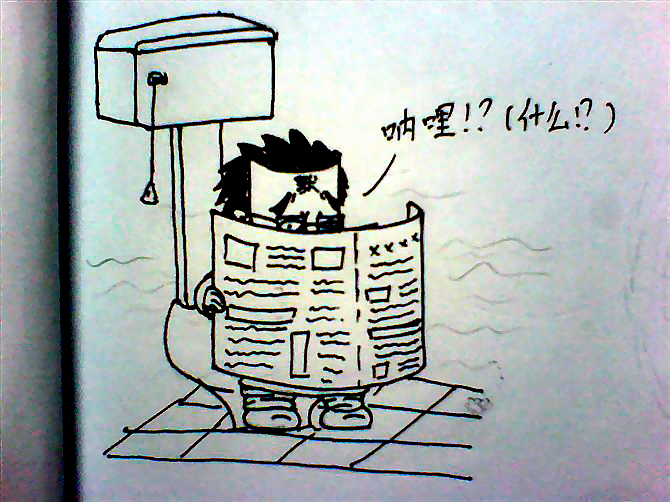 呐哩!?(什么!?)
××××